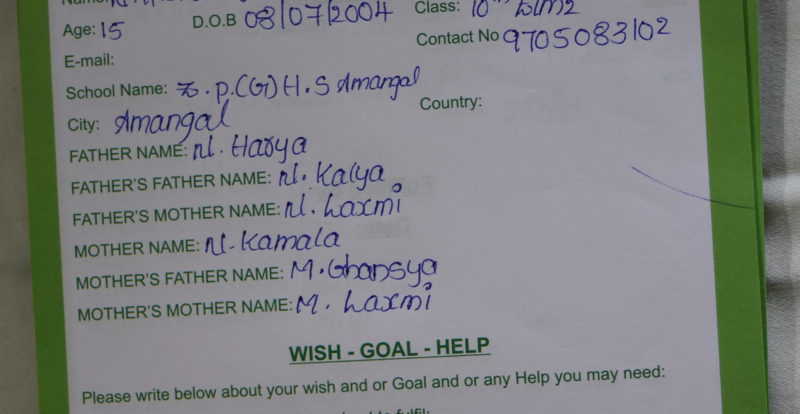 Name:
Age: 15 D.O.B 08/07/2004 Class: 10th
E-mail: Contact No 9705083102
School Name: Z.P.(G) H.S Amangal
City: Amangal Country:
FATHER NAME: N. Harya
FATHER'S FATHER NAME: N. Kalya
FATHER'S MOTHER NAME: N. Laxmi
MOTHER NAME: N. Kamala
MOTHER'S FATHER NAME: M. Ghansya
MOTHER'S MOTHER NAME: M. Laxmi
WISH - GOAL - HELP
Please write below about your wish and or Goal and or any Help you may need: